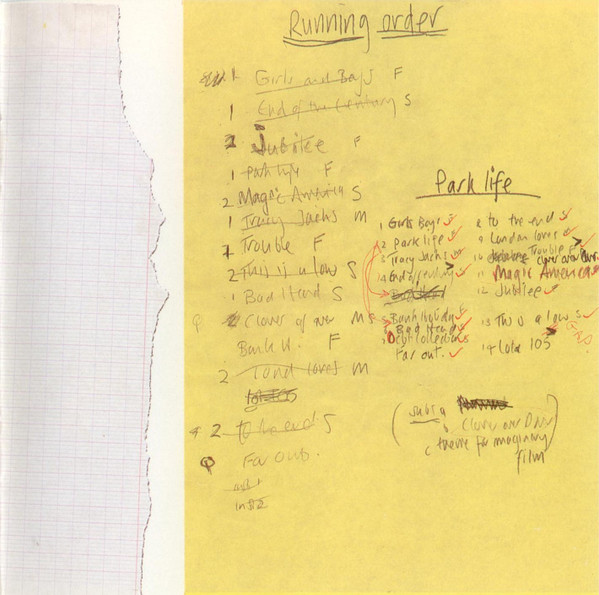 Running order
1 Girls and Boys F
1 End of the Century S
2 Jubilee F
1 Park life F
2 Magic America S
1 Tracy Jacks M
Trouble F
2 This is a low S
1 Bad Head S
2 Clover over M S
Bank H. F
2 Land loves M
2 to the end S
Far out.
Park life
1 Girls Boys
2 Park life
3 Tracy Jacks
4 End of century
5 Bank holiday
6 Bad Head
7 Debt Collectors
Far out.
8 to the end
9 London loves
10 Trouble clover over Dover
11 Magic America
12 Jubilee
13 This is a low
14 Lot 105
(subt a
Clover over Dover
theme for imaginary
film)